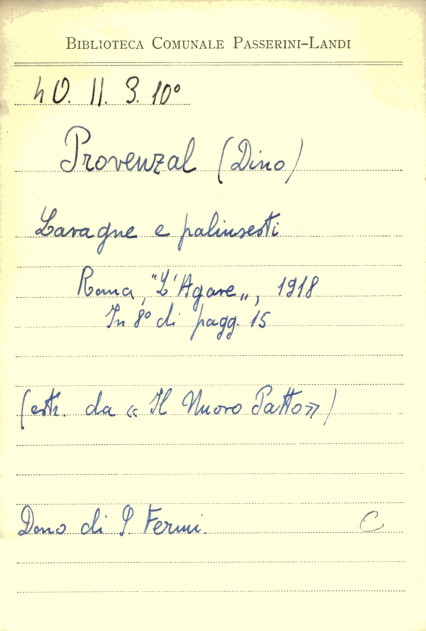 BIBLIOTECA COMUNALE PASSERINI-LANDI
40. II. 3. 10°
Provenzal (Dino)
Lavagne e palinsesti
Roma, "L'Agave„, 1918
In 8° di pagg. 15
(estr. da « Il Nuovo Patto» )
Dono di S. Fermi.
C